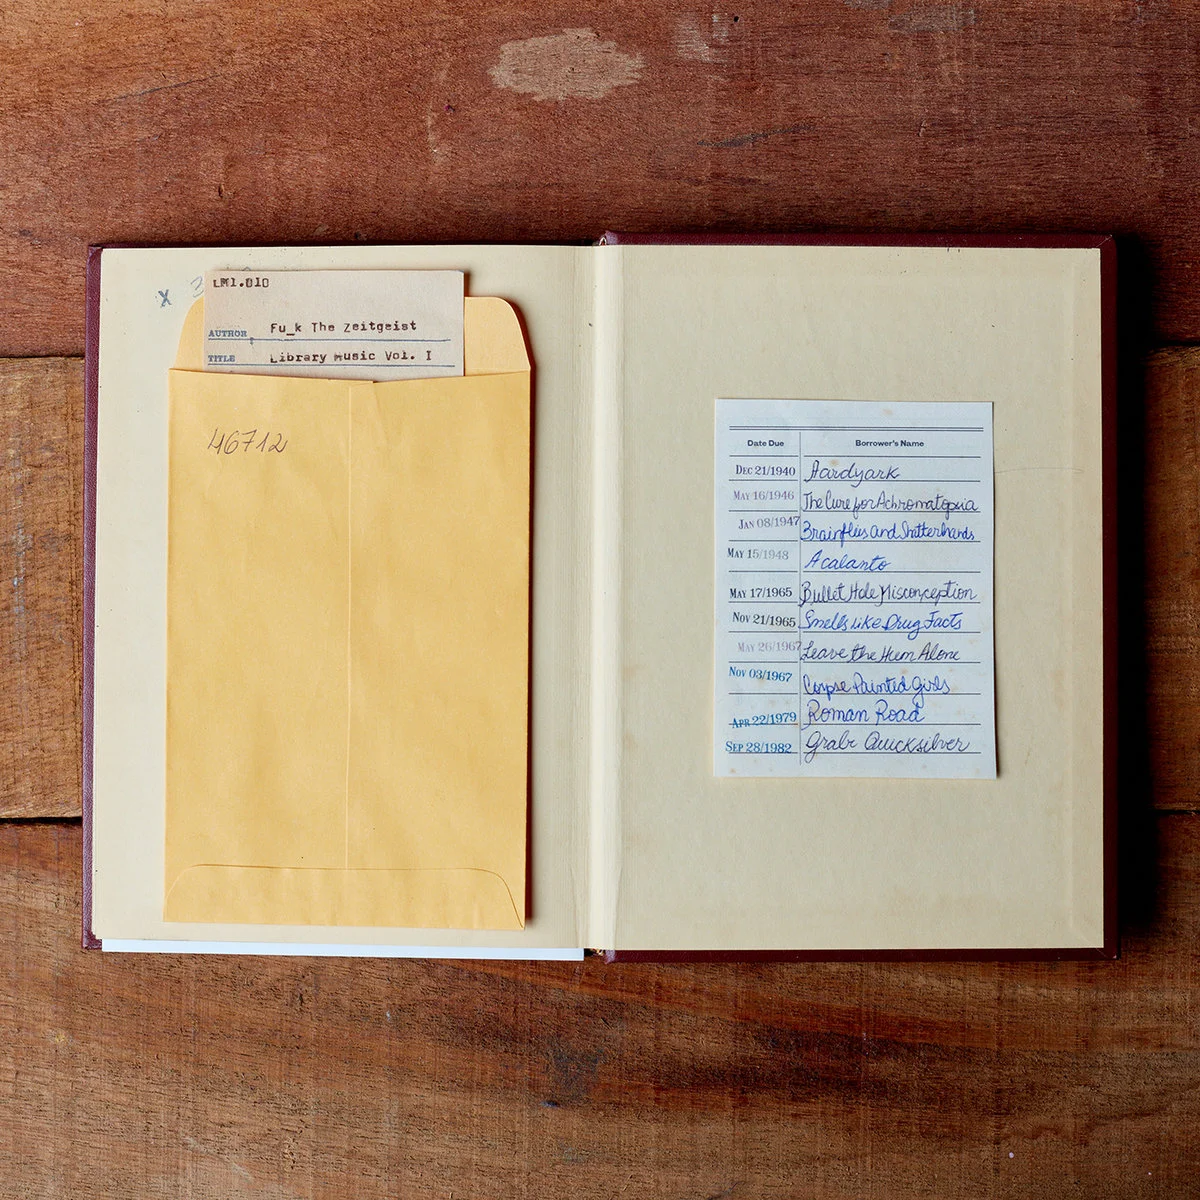 X 3
LM1.010
AUTHOR Fu_k The Zeitgeist
TITLE Library Music Vol. I
46712
Date Due Borrower's Name
DEC 21/1940 Aardyark
MAY 16/1946 The Cure for Achromatopsia
JAN 08/1947 Brainflies and Shatterhands
MAY 15/1948 Acalanto
MAY 17/1965 Bullet Hole Misconception
NOV 21/1965 Smells Like Drug Facts
MAY 26/1967 Leave the Hum Alone
NOV 03/1967 Corpse Painted Girls
APR 22/1979 Roman Road
SEP 28/1982 Grabr Quicksilver